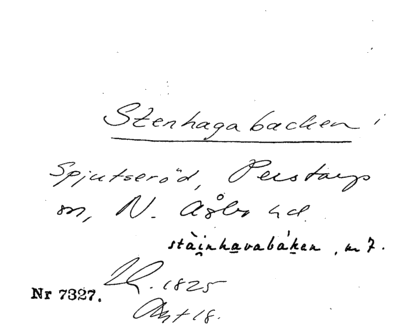 Stenhagabacken i
Spjutseröd, Perstorps
sn, N. Åsbo hd.
stài̯nhavabák̀en, m 7.
Nr 7327. LU. 1825
Akt 18.